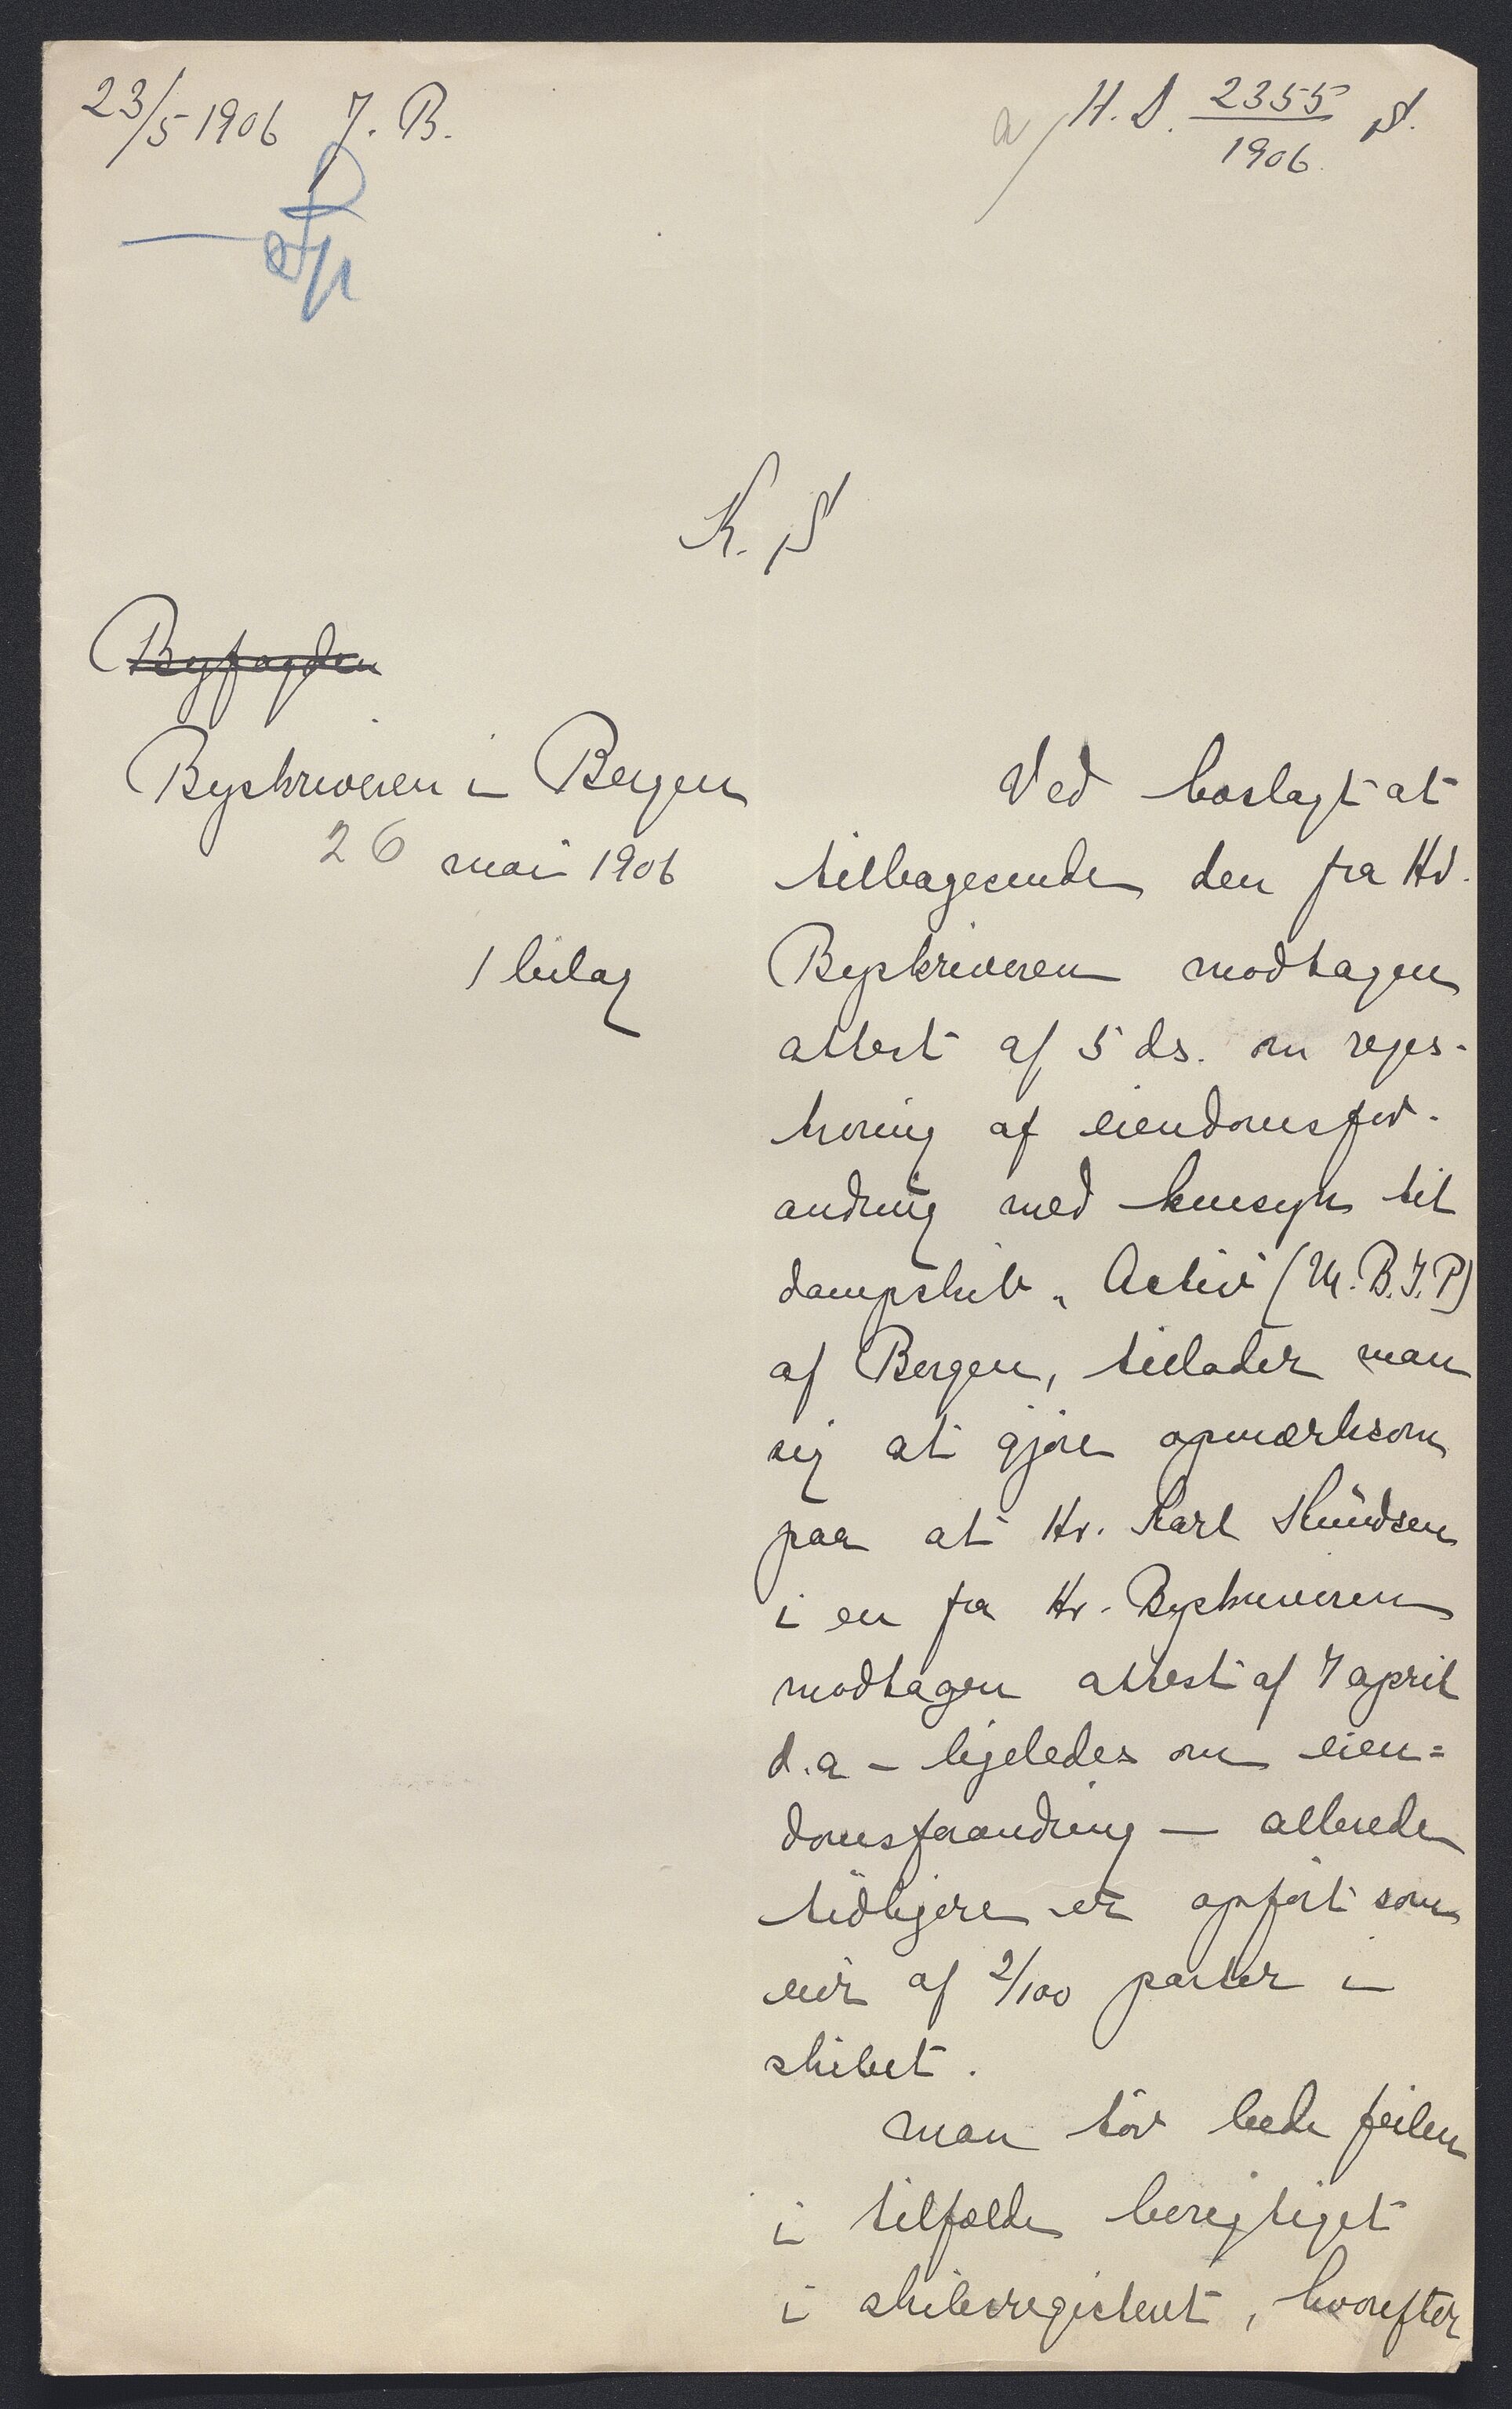 23/5 1906 J. B.
a/ H. D. 2355/1906 S.
K. S
Byfogden
Byskriveren i Bergen
26 mai 1906
1 bilag
Ved hoslagt at
tilbagesende den fra Hr.
Byskriveren modtagen
attest af 5 ds. om regis-
trering af eiendomsfor-
andring med hensyn til
dampskib „Activ" (M.B.J.P)
af Bergen, tillader man
sig at gjøre opmærksom
paa at Hr. Karl Knudsen
i en fra Hr. Byskriveren
modtagen attest af 7 april
d.a – ligeledes om eien=
domsforandring — allerede
tidligere er opført som
eier af 2/100 parter i
skibet.
man tør bede feilen
i tilfælde berigtiget
i skibsregisteret, hvorefter